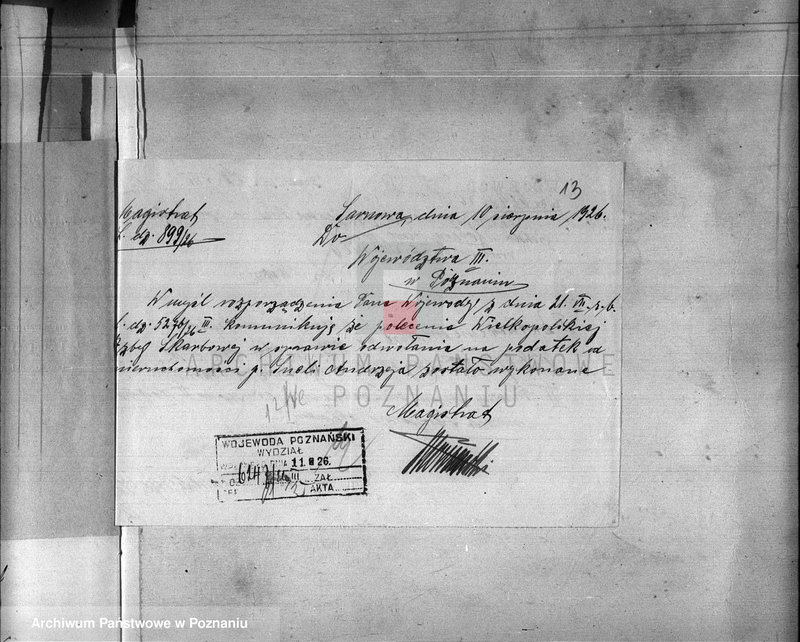 13
Magistrat
Sarnowa, dnia 10 sierpnia 1926.
L. dz. 899/26
Do
Województwa III.
w Poznaniu
W myśl rozporządzenia Pana Wojewody z dnia 21. VII. r. b.
L. dz. 5270/26 III. komunikuję że polecenie Wielkopolskiej
Izby Skarbowej w sprawie odwołania na podatek od
nieruchomości p. Andrzeja zostało wykonane
ARCHIWUM PAŃSTWOWE
W POZNANIU
Magistrat
WOJEWODA POZNAŃSKI
WYDZIAŁ
DNIA 11. 8 26.
ZAŁ.
AKTA
Archiwum Państwowe w Poznaniu